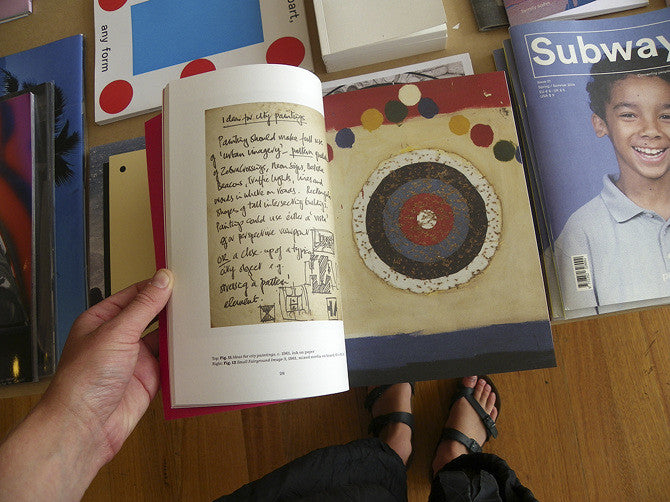 part,
any form
Ideas for city paintings.
Painting should make full use
of 'urban imagery' - pattern
of Zebra Crossings, Neon Signs, Belisha
Beacons, Traffic lights, lines and
words in white on roads. Rectangular
shapes of tall intersecting buildings.
Paintings could use either a 'vista'
of a perspective viewpoint
OR a close-up of a typical
city object e.g.
stressing a pattern
element.
Top: Fig. 11 Ideas for city paintings, c. 1961, ink on paper
Right: Fig. 12 Small Fairground Image 3, 1961, mixed media on board
Subway
Spring / Summer